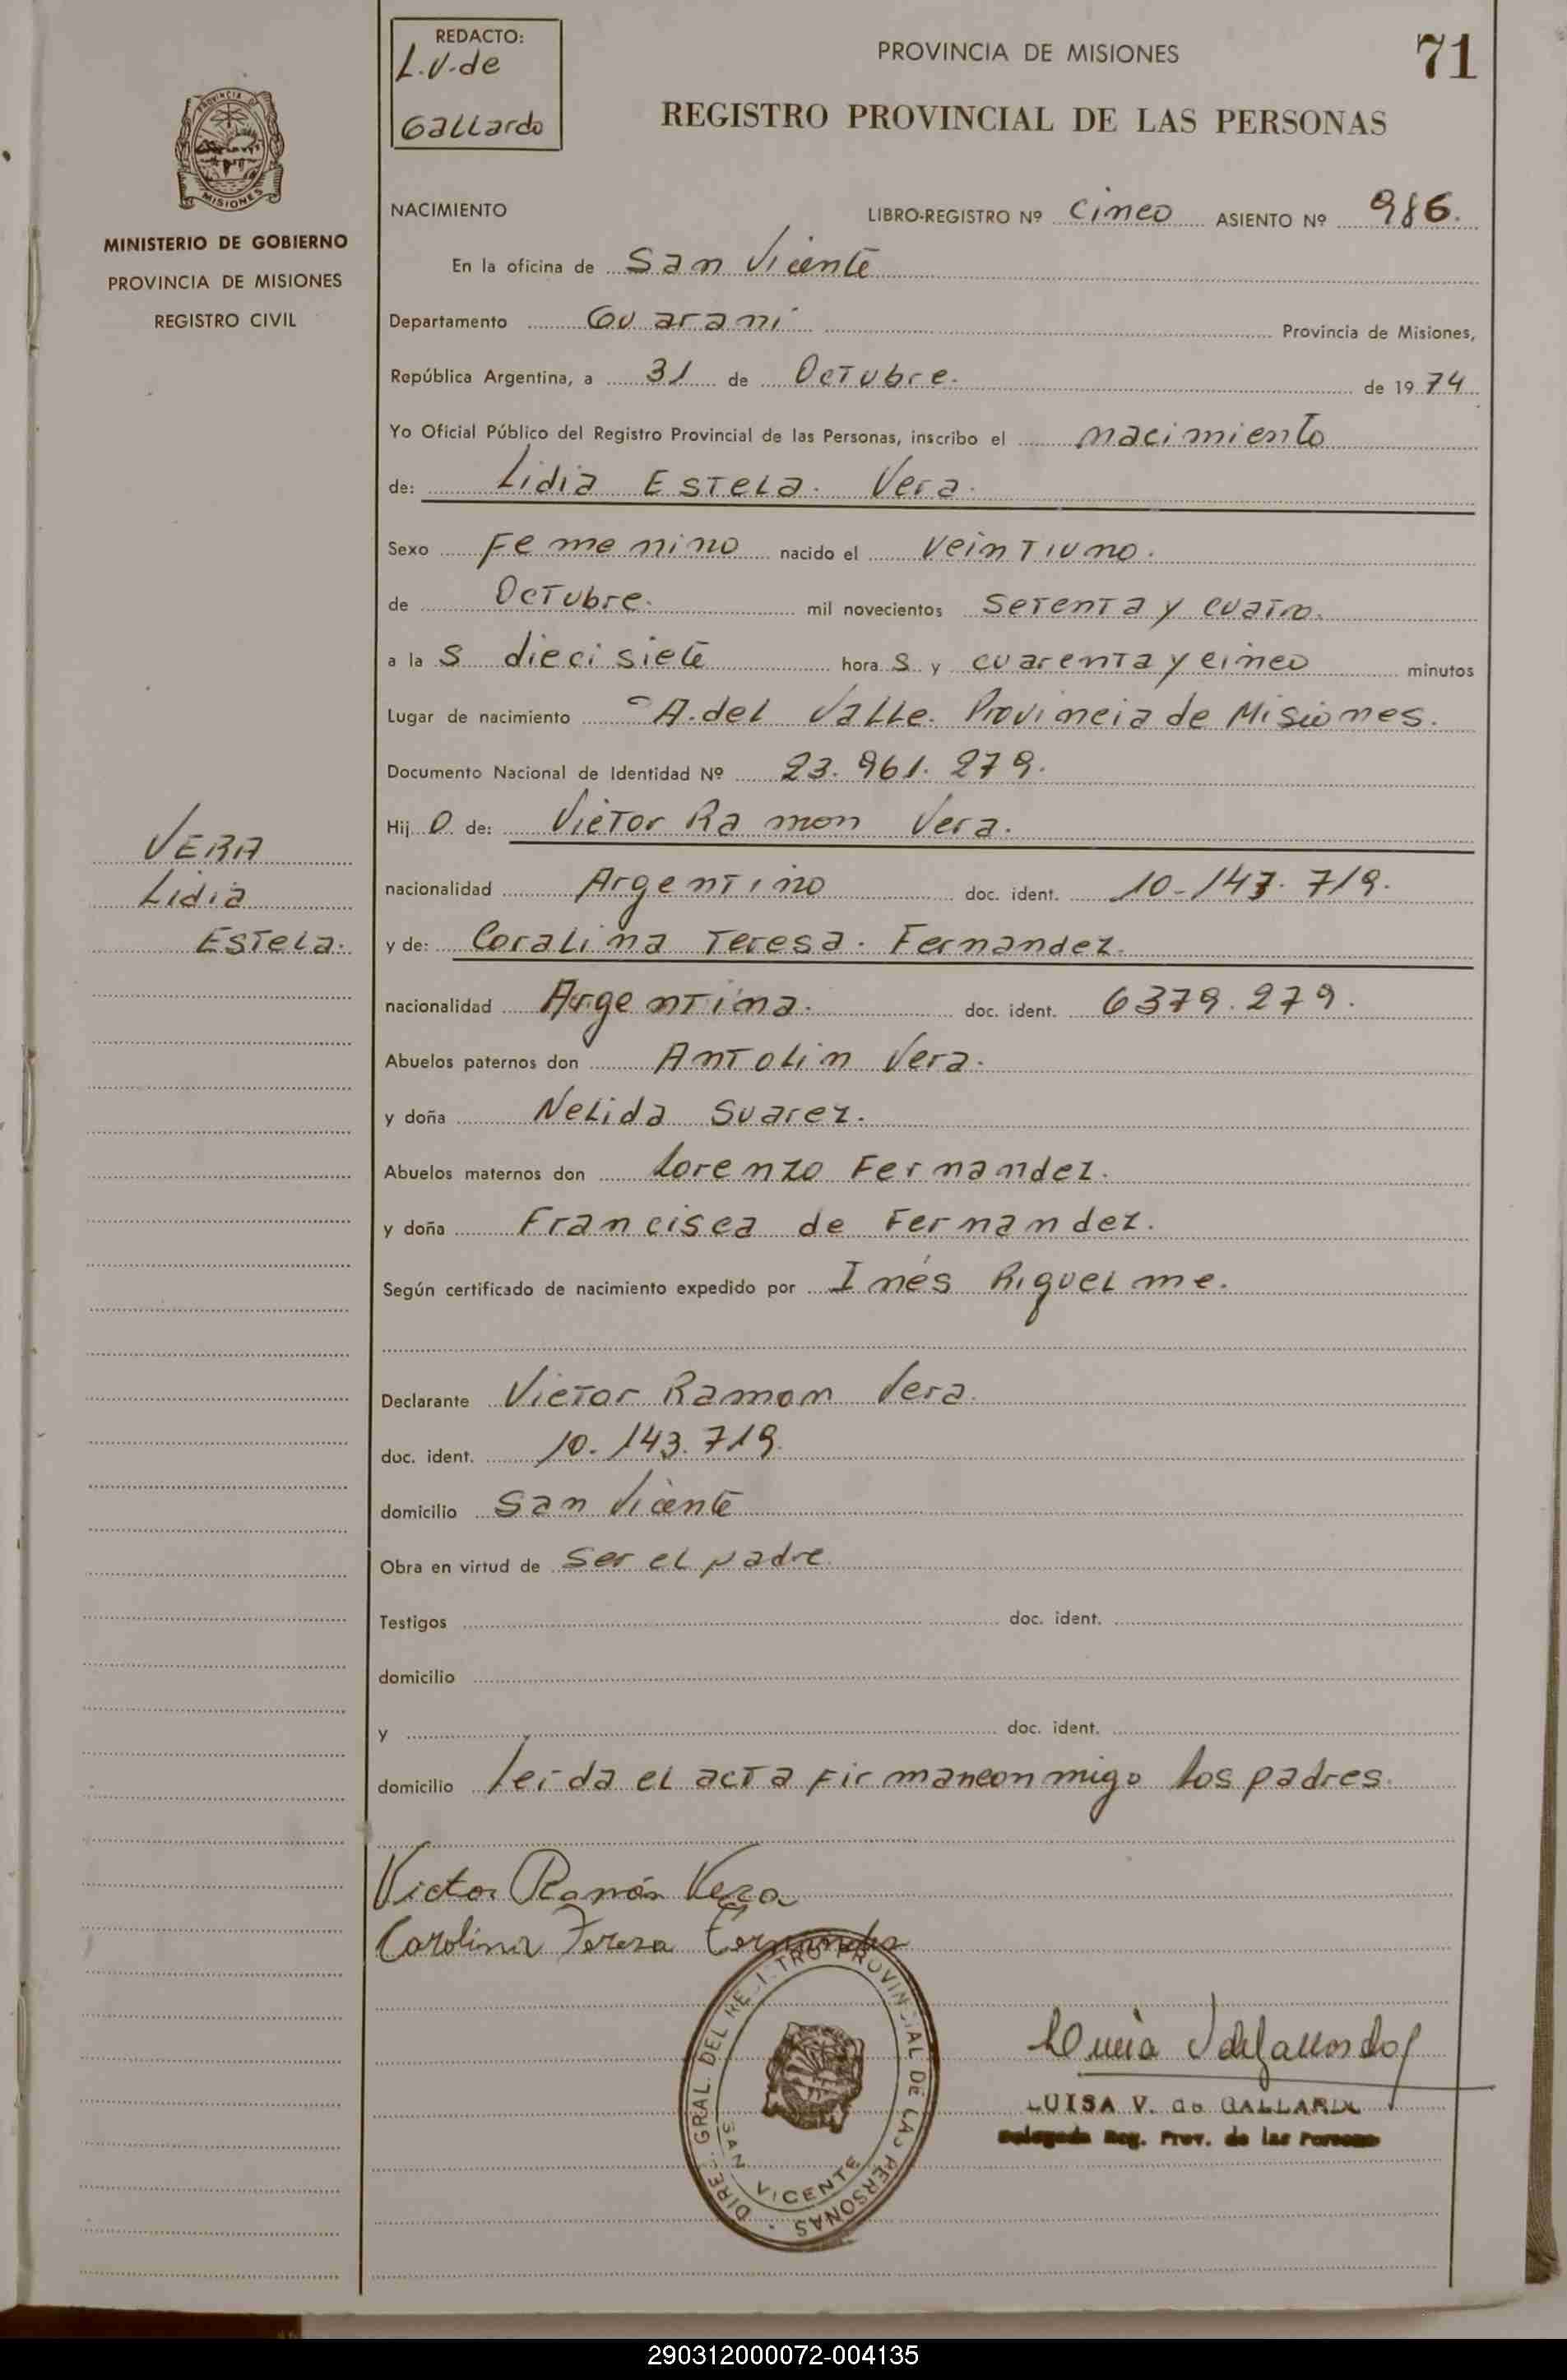 REDACTO:
L.V.de
Gallardo
PROVINCIA DE MISIONES
71
REGISTRO PROVINCIAL DE LAS PERSONAS
PROVINCIA DE
MISIONES
MINISTERIO DE GOBIERNO
PROVINCIA DE MISIONES
REGISTRO CIVIL
NACIMIENTO
LIBRO-REGISTRO Nº cinco ASIENTO Nº 986.
En la oficina de San Vicente
Departamento Guaraní Provincia de Misiones,
República Argentina, a 31 de Octubre. de 1974
Yo Oficial Público del Registro Provincial de las Personas, inscribo el nacimiento
de: Lidia Estela. Vera.
Sexo Femenino nacido el veintiuno.
de Octubre. mil novecientos setenta y cuatro.
a las diecisiete horas y cuarenta y cinco minutos
Lugar de nacimiento A. del Valle. Provincia de Misiones.
Documento Nacional de Identidad Nº 23.961.279.
Hijo de: Victor Ramon Vera.
VERA
Lidia
Estela.
nacionalidad Argentino doc. ident. 10-143.719.
y de: Coralina Teresa. Fernandez.
nacionalidad Argentina. doc. ident. 6379.279.
Abuelos paternos don Antolin Vera.
y doña Nelida Suarez.
Abuelos maternos don Lorenzo Fernandez.
y doña Francisca de Fernandez.
Según certificado de nacimiento expedido por Inés Riquelme.
Declarante Victor Ramon Vera.
doc. ident. 10.143.719.
domicilio San Vicente
Obra en virtud de ser el padre.
Testigos doc. ident.
domicilio
y doc. ident.
domicilio leída el acta firman conmigo los padres.
Victor Ramón Vera
Carolina Teresa Fernandez
DIREC. GRAL. DEL REGISTRO PROVINCIAL DE LAS PERSONAS
SAN VICENTE
LUISA V. de GALLARDO
Delegada Reg. Prov. de las Personas
290312000072-004135